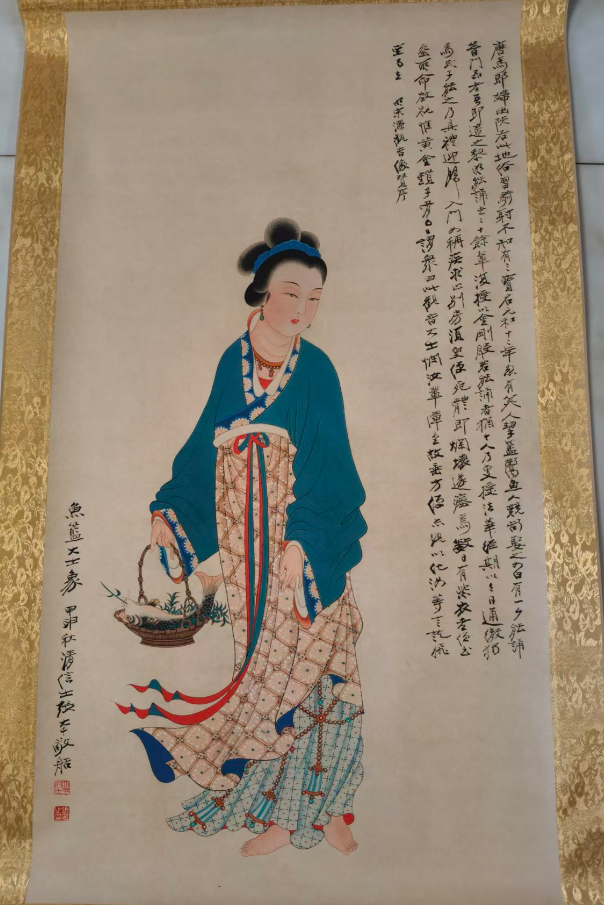 唐馬郎婦出陝右此地俗習騎射不知有三寶名元和十二年忽有美人挈籃鬻魚人競前娶之曰有一夕能誦
普門品者吾即適之黎明能誦者二十餘輩復授以金剛般若能誦者猶十人乃更授法華經期以三日通徹獨
馬氏子能之乃具禮迎歸入門乃稱疾求止別房須臾便死體即爛壞遂瘞焉數日有紫衣老僧至
葬所命啟視惟黃金鎖子骨謂眾曰此觀音大士憫汝輩障重故垂方便示現以化汝等言訖飛
空而去 明宋濂觀音像贊序
魚籃大士象 甲申秋清信士張大千敬繪